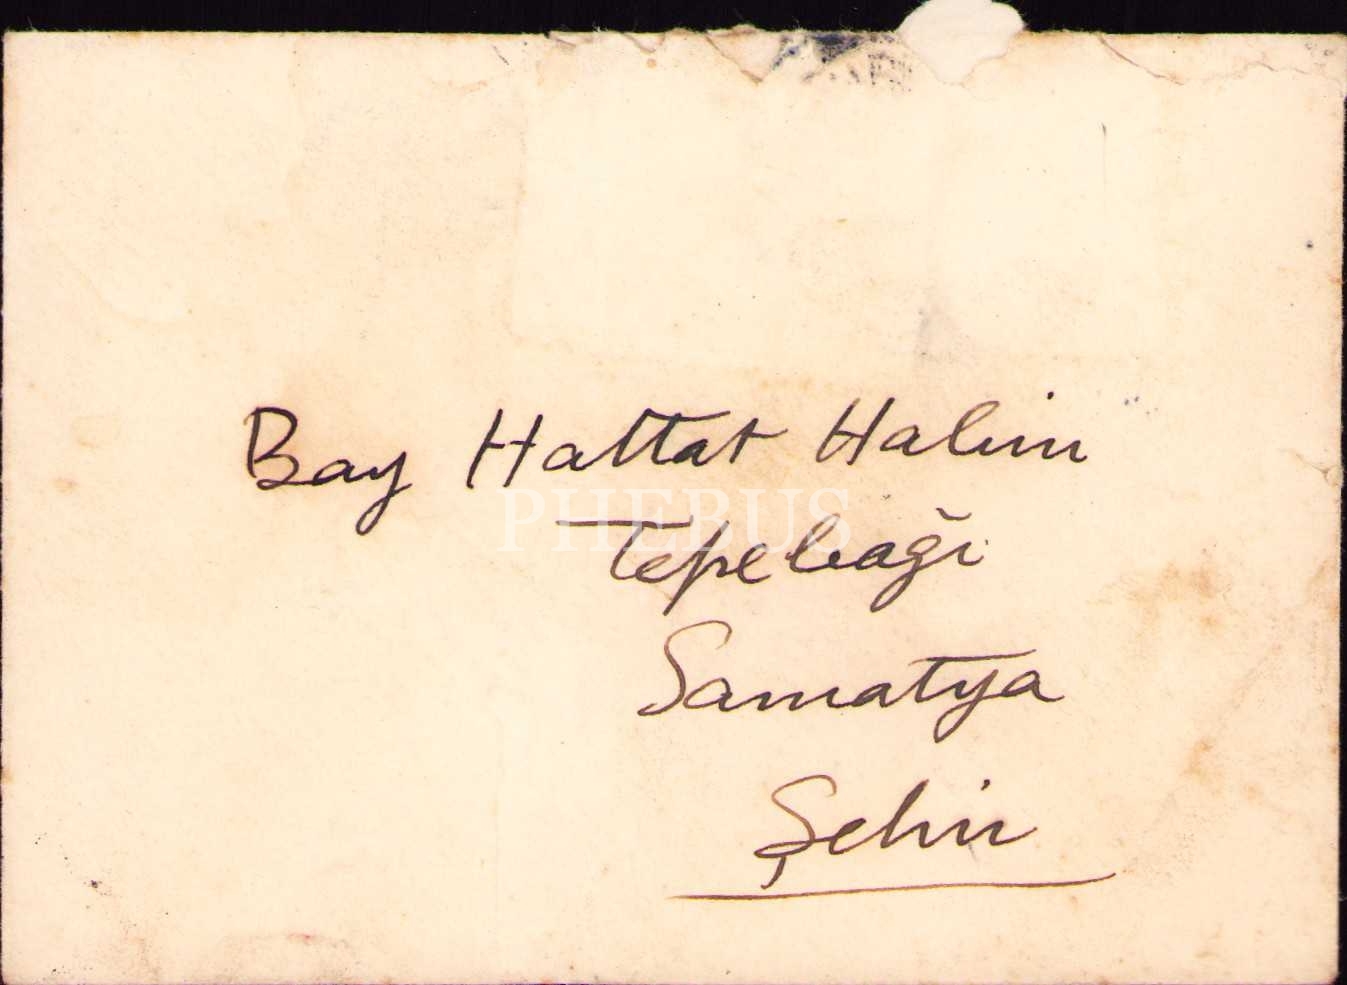 Bay Hattat Halim
PHEBUS
Tepebağı
Samatya
Şehir